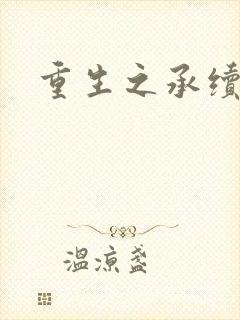 重生之承续
温凉盏